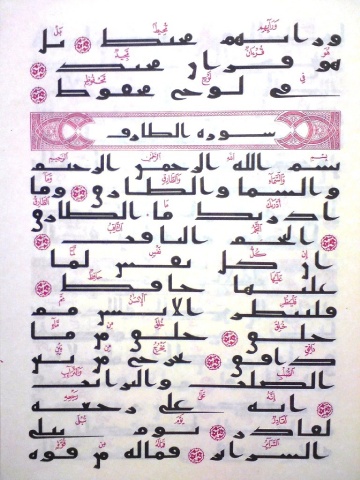 ورائهم محيط ۝ بل
هو قران مجيد ۝
في لوح محفوظ ۝
سورة الطارق
بسم الله الرحمن الرحيم
والسما والطارق ۝ وما
ادريك ما الطارق
۝ النجم الثاقب ۝
ان كل نفس لما
عليها حافظ ۝
فلينظر الانسن مم
خلق ۝ خلق من ما
دافق ۝ يخرج من بين
الصلب والترائب
۝ انه على رجعه
لقادر ۝ يوم تبلى
السرائر ۝ فماله من قوة